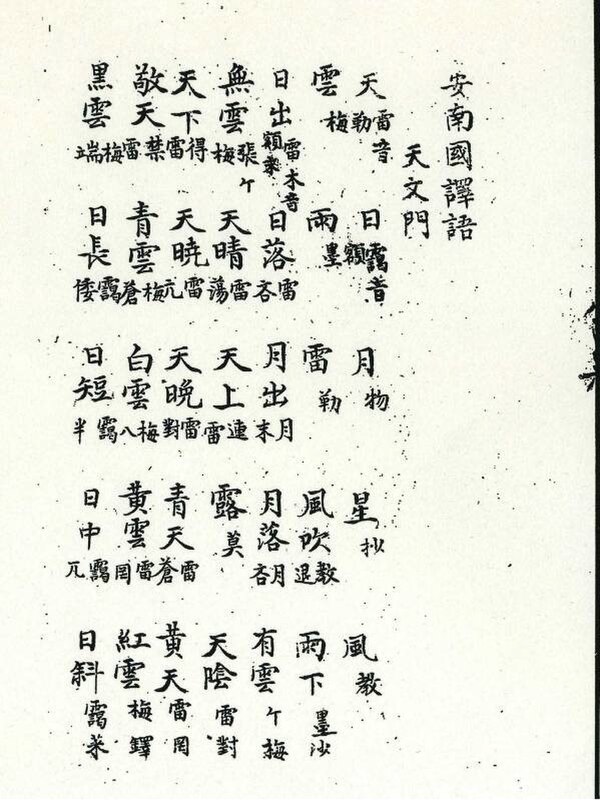 安南國譯語
天文門
天 雷音勒 日 靄音額 月 物 星 抄 風 教
雲 梅 雨 墨 雷 勒 風吹 教退 雨下 墨沙
日出 雷木音額 日落 雷吝 月出 月末 月落 月吝 有雲 ケ梅
無雲 張ケ梅 天晴 雷蕩 天上 連雷 露 莫 天陰 雷對
天下 得雷 天曉 雷亢 天晚 雷對 青天 雷蒼 黃天 雷罔
敬天 禁雷 青雲 梅蒼 白雲 梅八 黃雲 雷罔 紅雲 梅鐸
黑雲 梅端 日長 靄倭 日短 靄半 日中 靄兀 日斜 靄菜